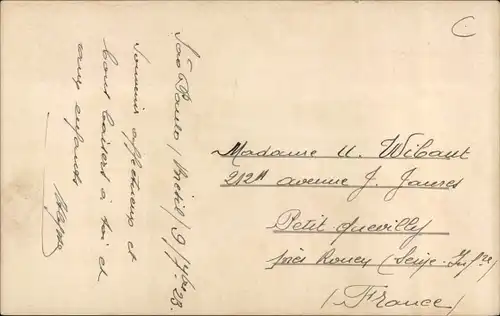 São Paulo / Brésil / 9 / 28.
Souvenir affectueux et
bons baisers à toi et
aux enfants
Madame U. Wibaut
212 avenue J. Jaures
Petit-Quevilly
près Rouen (Seine-Infre)
(France)
C